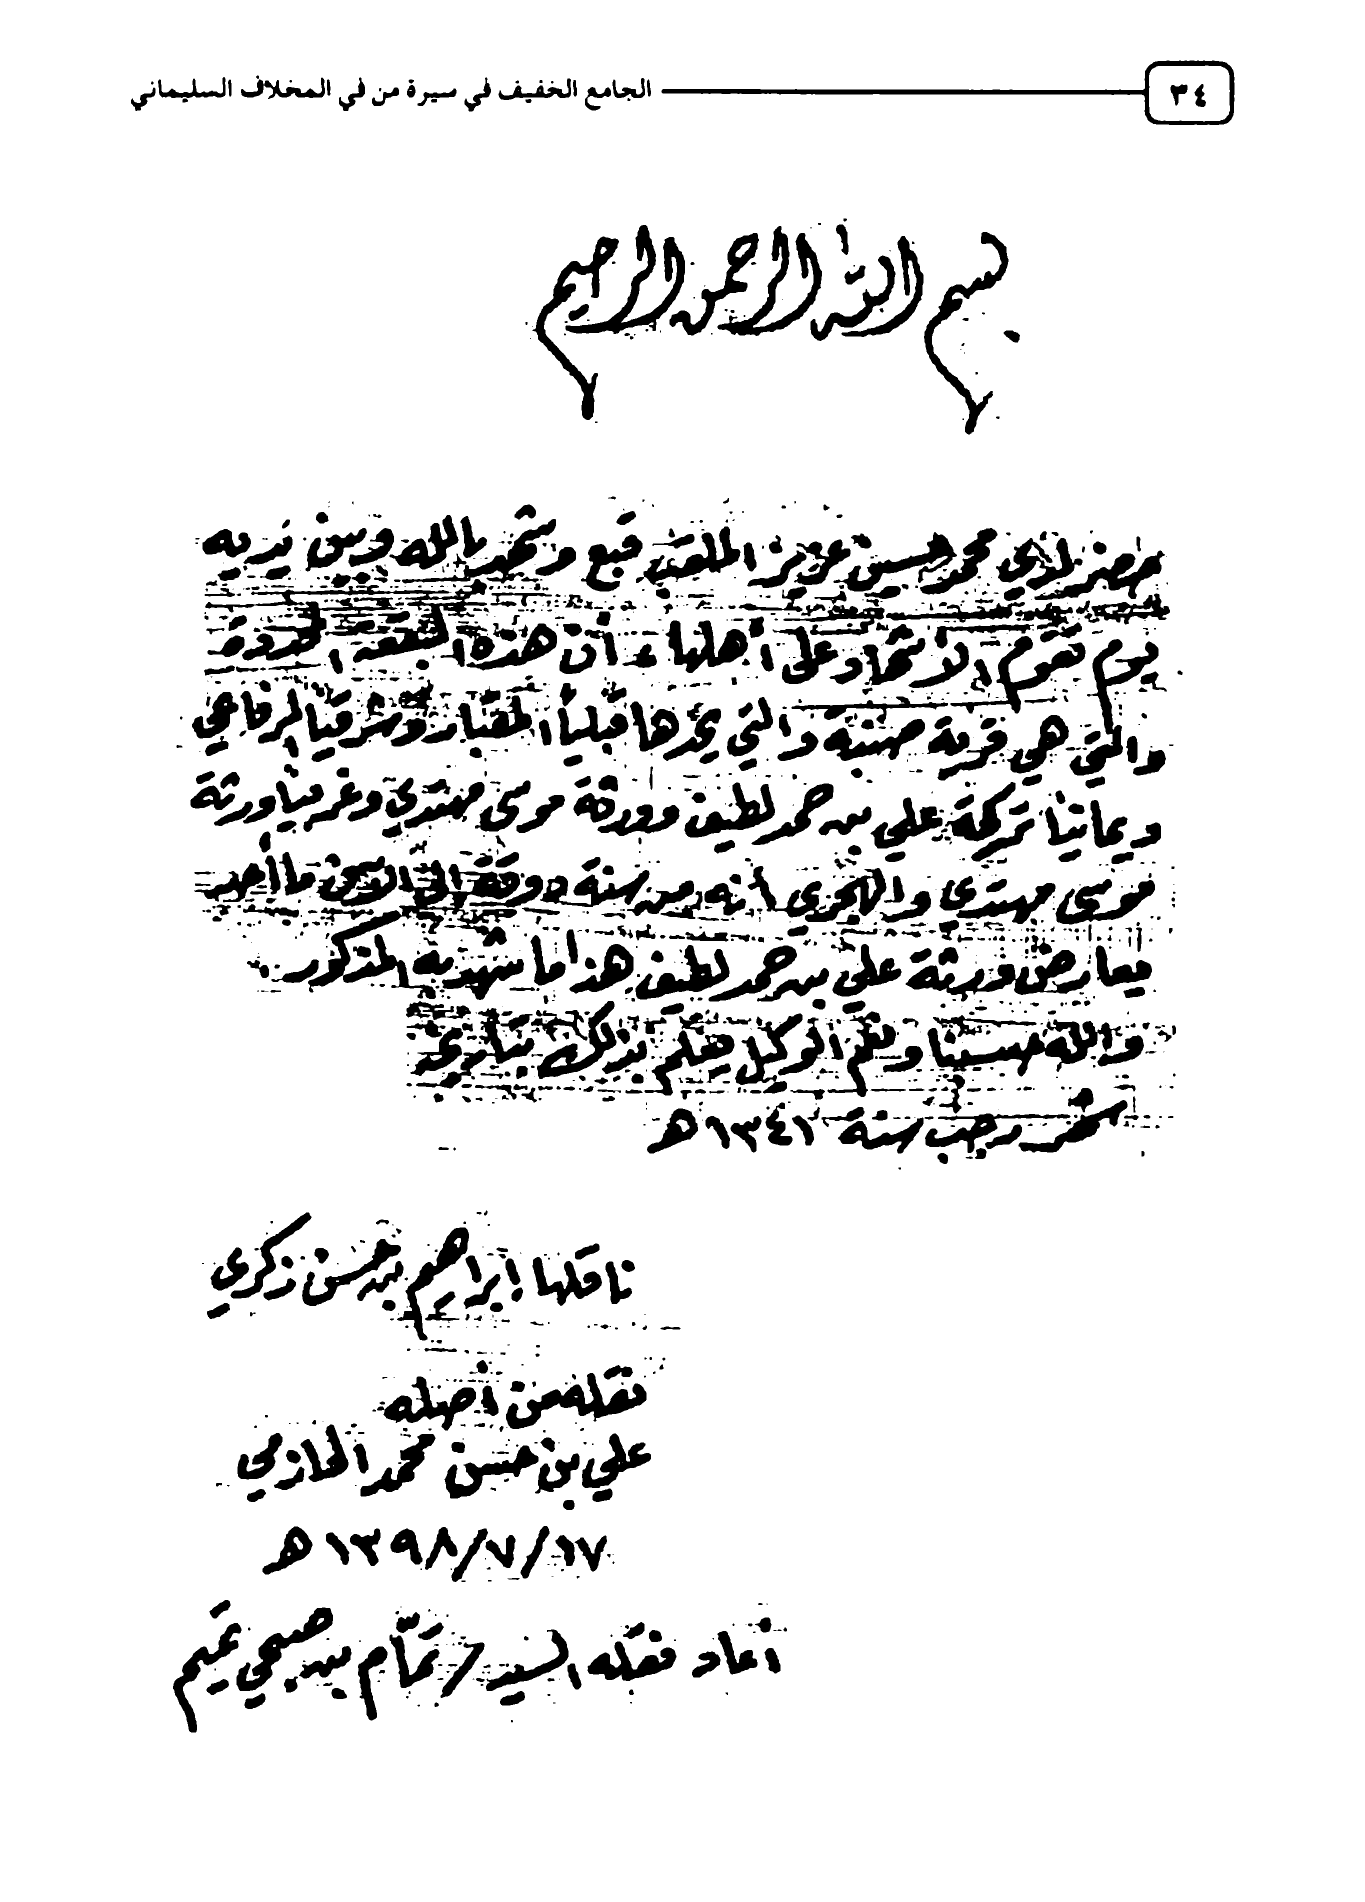 ٣٤
الجامع الخفيف في سيرة من في المخلاف السليماني
بسم الله الرحمن الرحيم
حضر لدي محمد حسين عزيز الملقب قبع وشهد بالله وبين يديه
يوم تقوم الأشهاد على أهلها، أن هذه البقعة المحدودة
والتي هي قرية صنبة والتي يحدها قبلياً المقبار وشرقياً الرفاعي
ويمانياً تركحة علي بن حمد لطيف وورثة موسى مهتدي وغربياً ورثة
موسى مهتدي والهجري أنه من سنة دوقة إلى الآن ما أحد
معارض ورثة علي بن حمد لطيف هذا ما شهد به المذكور
والله حسبنا ونعم الوكيل يعلم بذلك بتاريخ
شهر رجب سنة ١٣٤١ هـ
ناقلها إبراهيم بن حسن زكري
نقله من أصله
علي بن حسن محمد الحازمي
١٣٩٨/٧/١٧ هـ
أعاد نقله السيد/ تمّام بن صبحي تميم